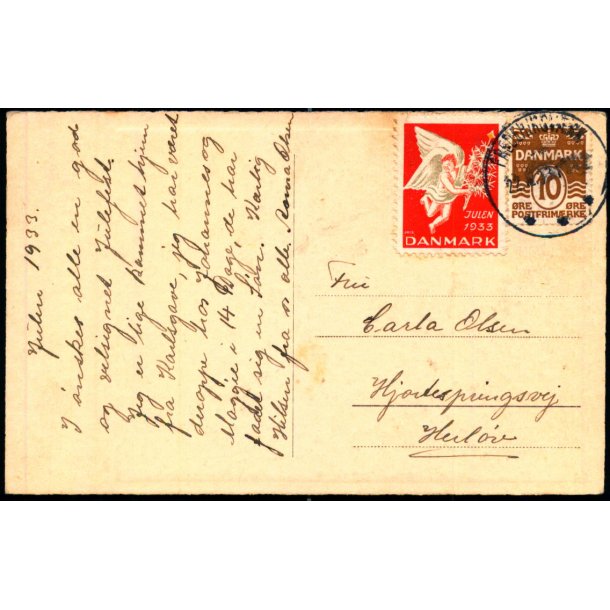 Julen 1933.
I ønskes alle en god
og velsignet Julefest.
Jeg er lige kommet hjem
fra jeg har været
deroppe hos Johannes og
Maggie i 14 Dage, de har
faaet sig en Søn. Kærlig
Hilsen fra os alle. Anna Olsen
JULEN
1933
DANMARK
DANMARK
10
ØRE ØRE
POSTFRIMÆRKE
Fru
Carla Olsen
Hjortespringsvej
Herløv